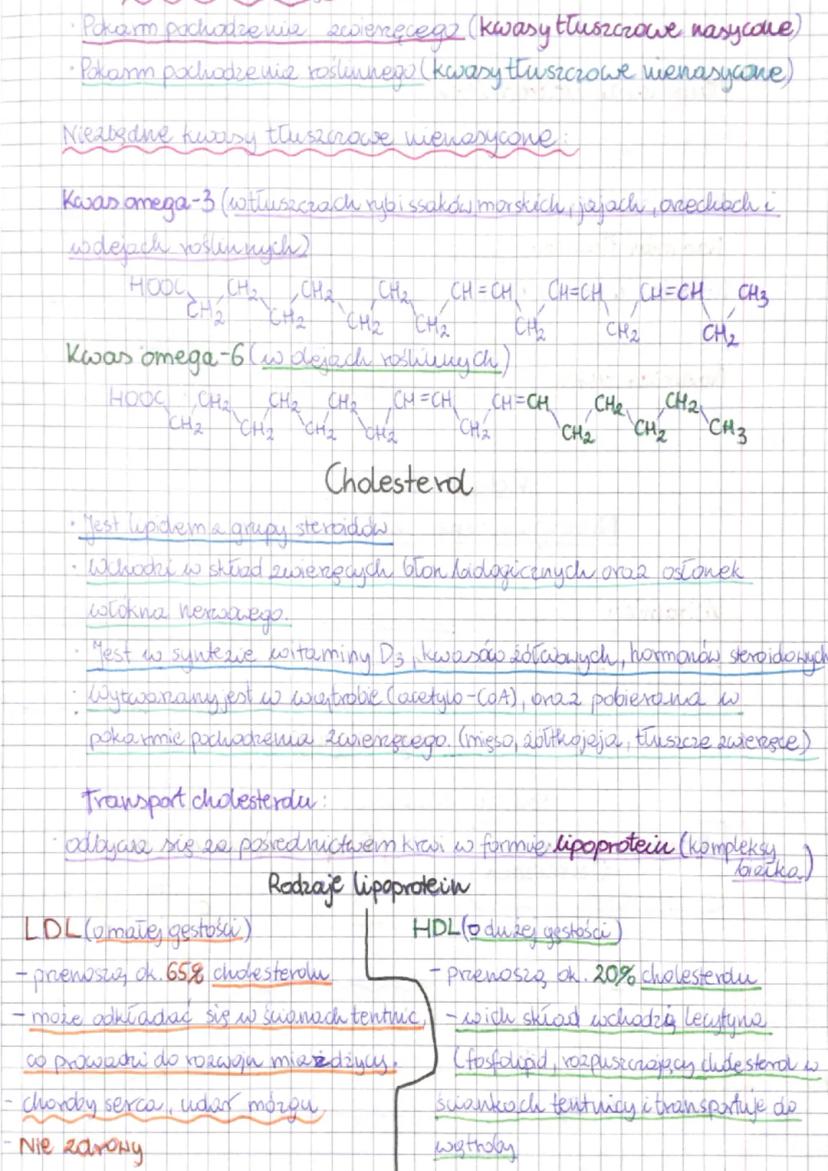 · Pokarm pochodzenia zwierzęcego (kwasy tłuszczowe nasycone)
· Pokarm pochodzenia roślinnego (kwasy tłuszczowe nienasycone)
Niezbędne kwasy tłuszczowe nienasycone:
Kwas omega-3 (w tłuszczach ryb i ssaków morskich, jajach, orzechach i
w olejach roślinnych)
HOOC CH2 CH2 CH2 CH2 CH2 CH2 CH2 CH=CH CH2 CH=CH CH2 CH=CH CH2 CH3
Kwas omega-6 (w olejach roślinnych)
HOOC CH2 CH2 CH2 CH2 CH2 CH2 CH2 CH=CH CH2 CH=CH CH2 CH2 CH2 CH2 CH3
Cholesterol
· Jest lipidem z grupy steroidów
· Wchodzi w skład zwierzęcych błon biologicznych oraz osłonek
włókna nerwowego.
· Jest w syntezie witaminy D3, kwasów żółciowych, hormonów steroidowych
· Wytwarzany jest w wątrobie (acetylo-CoA), oraz pobierana w
pokarmie pochodzenia zwierzęcego. (mięso, żółtko jaja, tłuszcze zwierzęce)
Transport cholesterolu:
· odbywa się za pośrednictwem krwi w formie lipoprotein (kompleksy
białka)
Rodzaje lipoprotein
LDL (o małej gęstości)
- przenoszą ok. 65% cholesterolu
- może odkładać się w ścianach tętnic,
co prowadzi do rozwoju miażdżycy.
- choroby serca, udar mózgu
- Nie zdrowy
HDL (o dużej gęstości)
- przenoszą ok. 20% cholesterolu
- w ich skład wchodzi lecytyna
(fosfolipid, rozpuszczający cholesterol w
ściankach tętnicy i transportuje do
wątroby